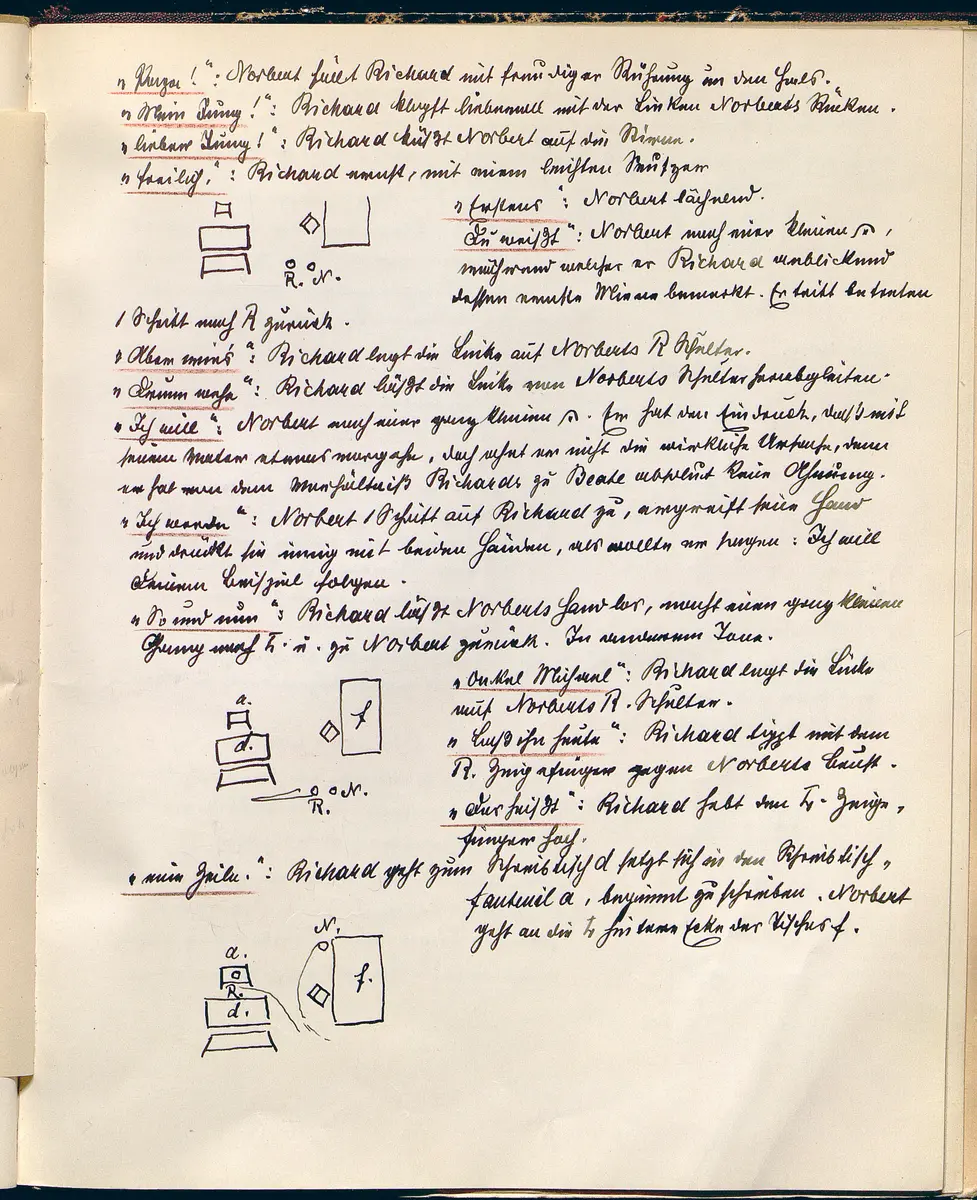 „Papa!“: Norbert fällt Richard mit freudiger Rührung um den Hals.
„Mein Jung!“: Richard klopft liebevoll mit der Linken Norberts Rücken.
„lieber Jung!“: Richard küßt Norbert auf die Stirne.
„freilich,“: Richard ernst, mit einem leichten Seufzer
„Erstens“: Norbert lächelnd.
„Du weißt“: Norbert nach einer kleinen
während welcher er Richard anblickend
dessen ernste Miene bemerkt. Er tritt betreten
R. N.
1 Schritt nach R zurück.
„Aber wird's“: Richard legt die Linke auf Norberts R Schulter.
Richard läßt die Linke von Norberts Schulter herabgleiten.
„Ich will“: Norbert nach einer ganz kleinen Er hat den Eindruck, daß mit
seinem Vater etwas vorgehe, doch ahnt er nicht die wirkliche Ursache, denn
er hat von dem Verhältniß Richards zu Beate absolut keine Ahnung.
„Ich werde“: Norbert 1 Schritt auf Richard zu, ergreift seine Hand
und drückt sie innig mit beiden Händen, als wollte er sagen: Ich will
Deinem Beispiel folgen.
„So und nun“: Richard läßt Norberts Hand los, macht einen ganz kleinen
Gang nach L. u. zu Norbert zurück. In anderem Tone.
„Onkel Michael“: Richard legt die Linke
auf Norberts R. Schulter.
„Laß ihn heute“: Richard tippt mit dem
R. Zeigefinger gegen Norberts Brust.
„Das heißt“: Richard hebt den L. Zeige-
finger hoch.
a.
d.
f
R. N.
„eine Zeile.“: Richard geht zum Schreibtisch d setzt sich in den Schreibtisch-
fauteuil a, beginnt zu schreiben. Norbert
geht an die L hintere Ecke des Tisches f.
N.
a.
R.
d.
f.